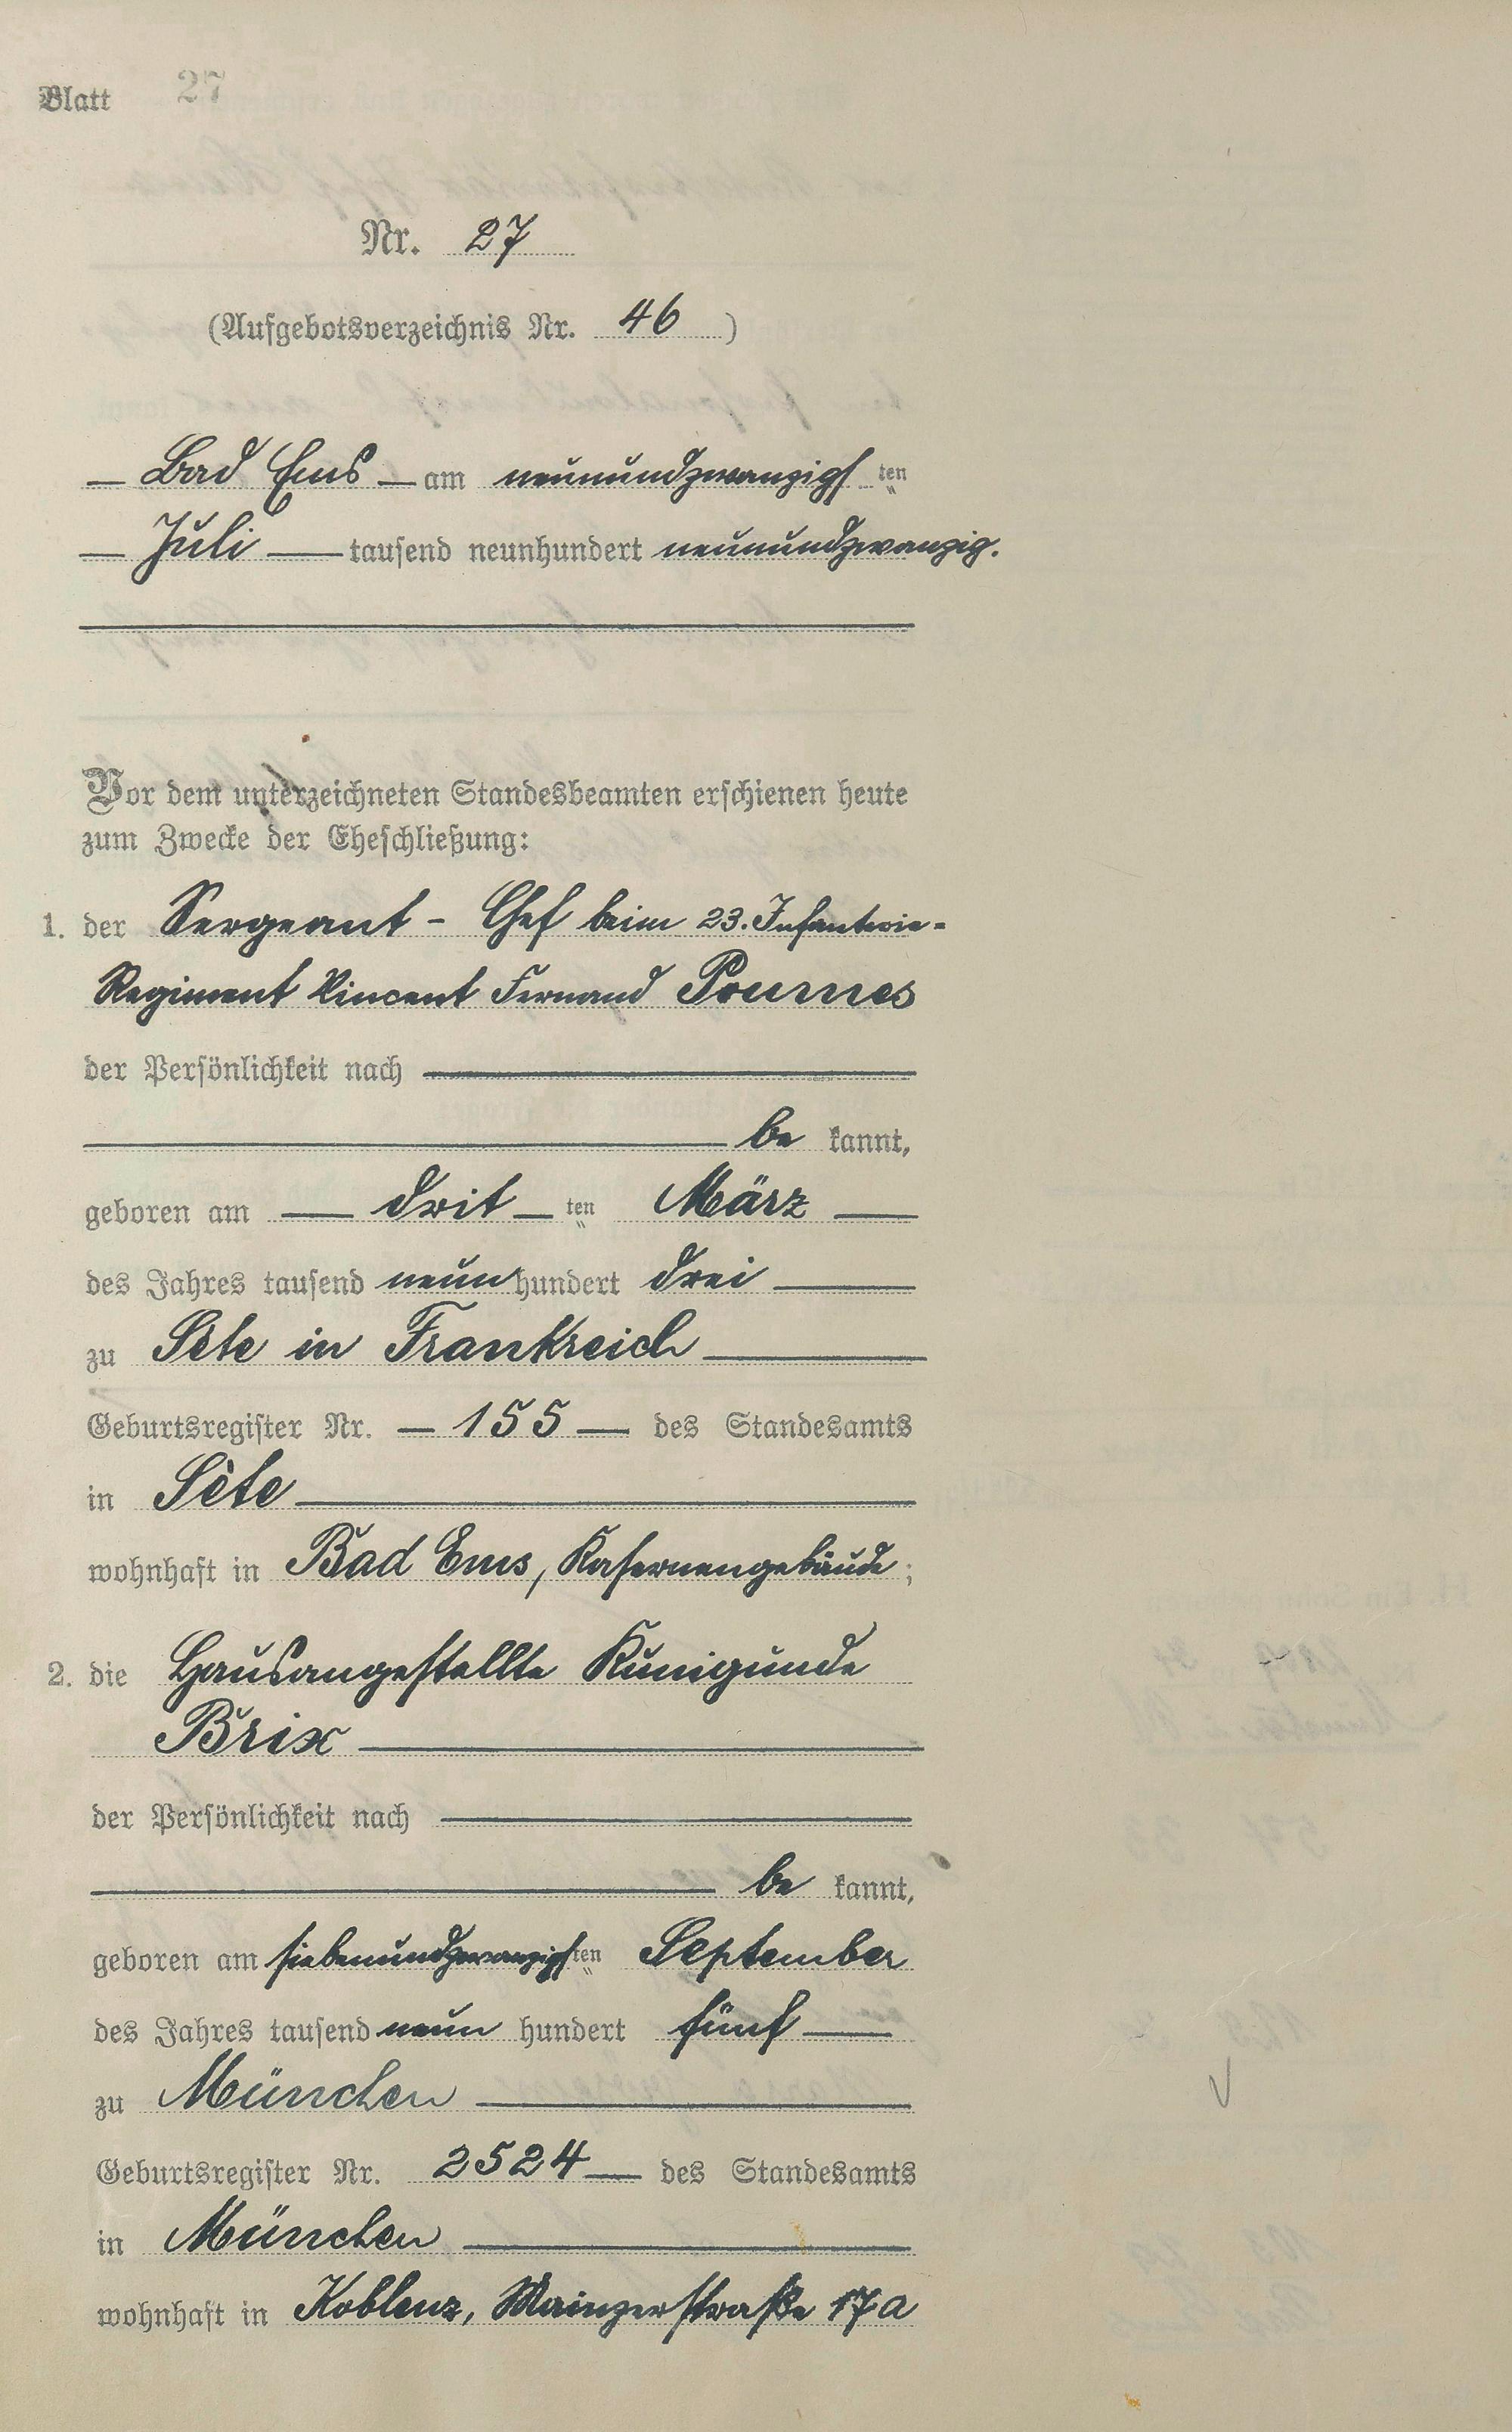 Blatt 27
Nr. 27
(Aufgebotsverzeichnis Nr. 46)
Bad Ems am neunundzwanzigsten
Juli tausend neunhundert neunundzwanzig.
Vor dem unterzeichneten Standesbeamten erschienen heute
zum Zwecke der Eheschließung:
1. der Sergeant - Chef beim 23. Infanterie-
Regiment Vincent Fernand Pournes
der Persönlichkeit nach
be kannt,
geboren am dritten März
des Jahres tausend neunhundert drei
zu Sète in Frankreich
Geburtsregister Nr. 155 des Standesamts
in Sète
wohnhaft in Bad Ems, Kasernengebäude;
2. die Hausangestellte Kunigunde
Brix
der Persönlichkeit nach
be kannt,
geboren am siebenundzwanzigsten September
des Jahres tausend neun hundert fünf
zu München
Geburtsregister Nr. 2524 des Standesamts
in München
wohnhaft in Koblenz, Mainzerstraße 17a